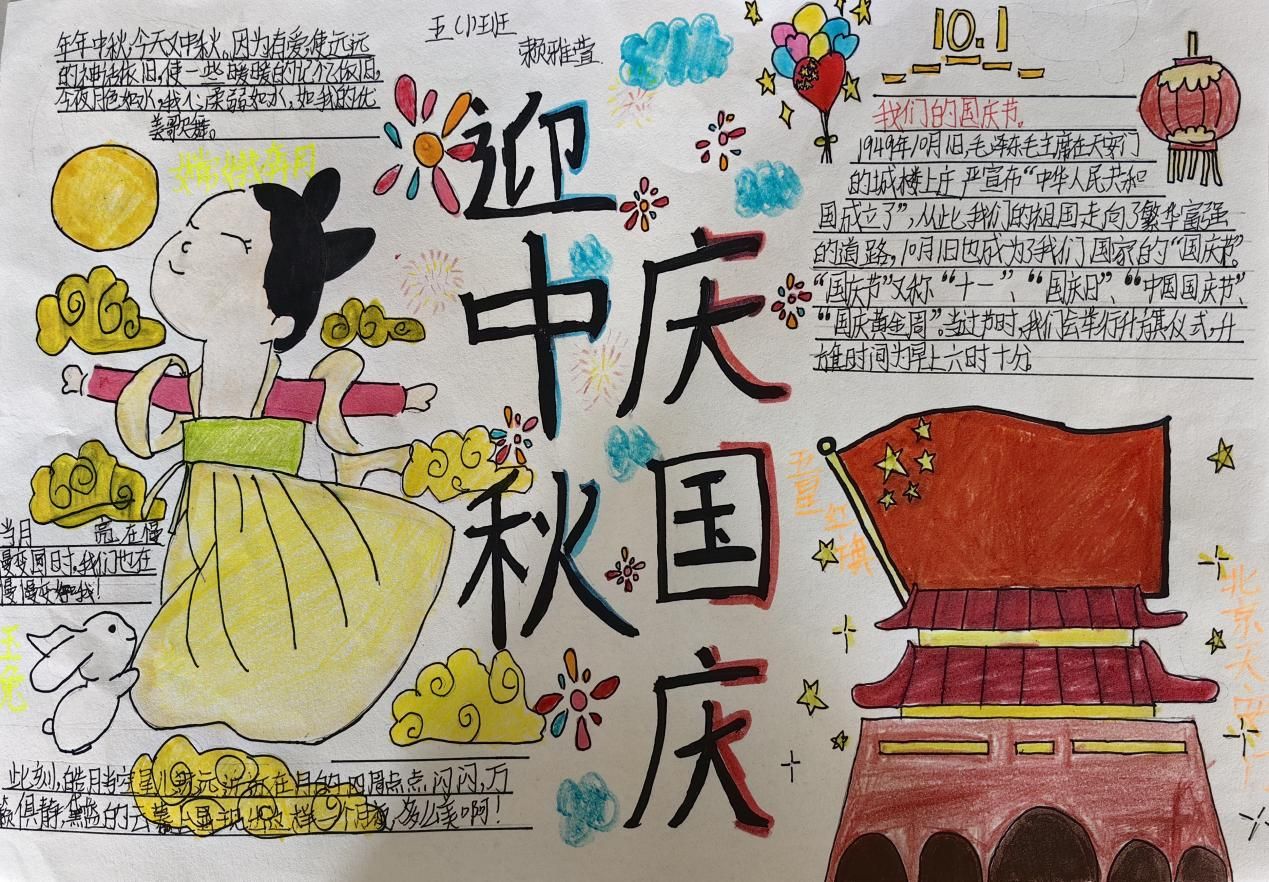 年年中秋,今天又中秋。因为有爱,使元远
的神话依旧,使一些暖暖的记忆依旧。
今夜月色如水,我心柔弱如水,如我的优
美歌舞。
五(1)班
赖雅萱
嫦娥奔月
迎
中
秋
庆
国
庆
10.1
我们的国庆节。
1949年10月1日,毛泽东毛主席在天安门
的城楼上庄严宣布“中华人民共和
国成立了”,从此,我们的祖国走向了繁华富强
的道路,10月1日也成为了我们国家的“国庆节”。
“国庆节”又称“十一”、“国庆日”、“中国国庆节”、
“国庆黄金周”。当过节时,我们会举行升旗仪式,升
旗时间为早上六时十分。
五星
红旗
北京天安门
当月亮在慢
慢变圆日时,我们也在
慢慢
玉兔
此刻,皓月当空,星
在月的四周点点闪闪,万
籁俱静,
的云幕上显现出这样一个月夜,多么美啊!